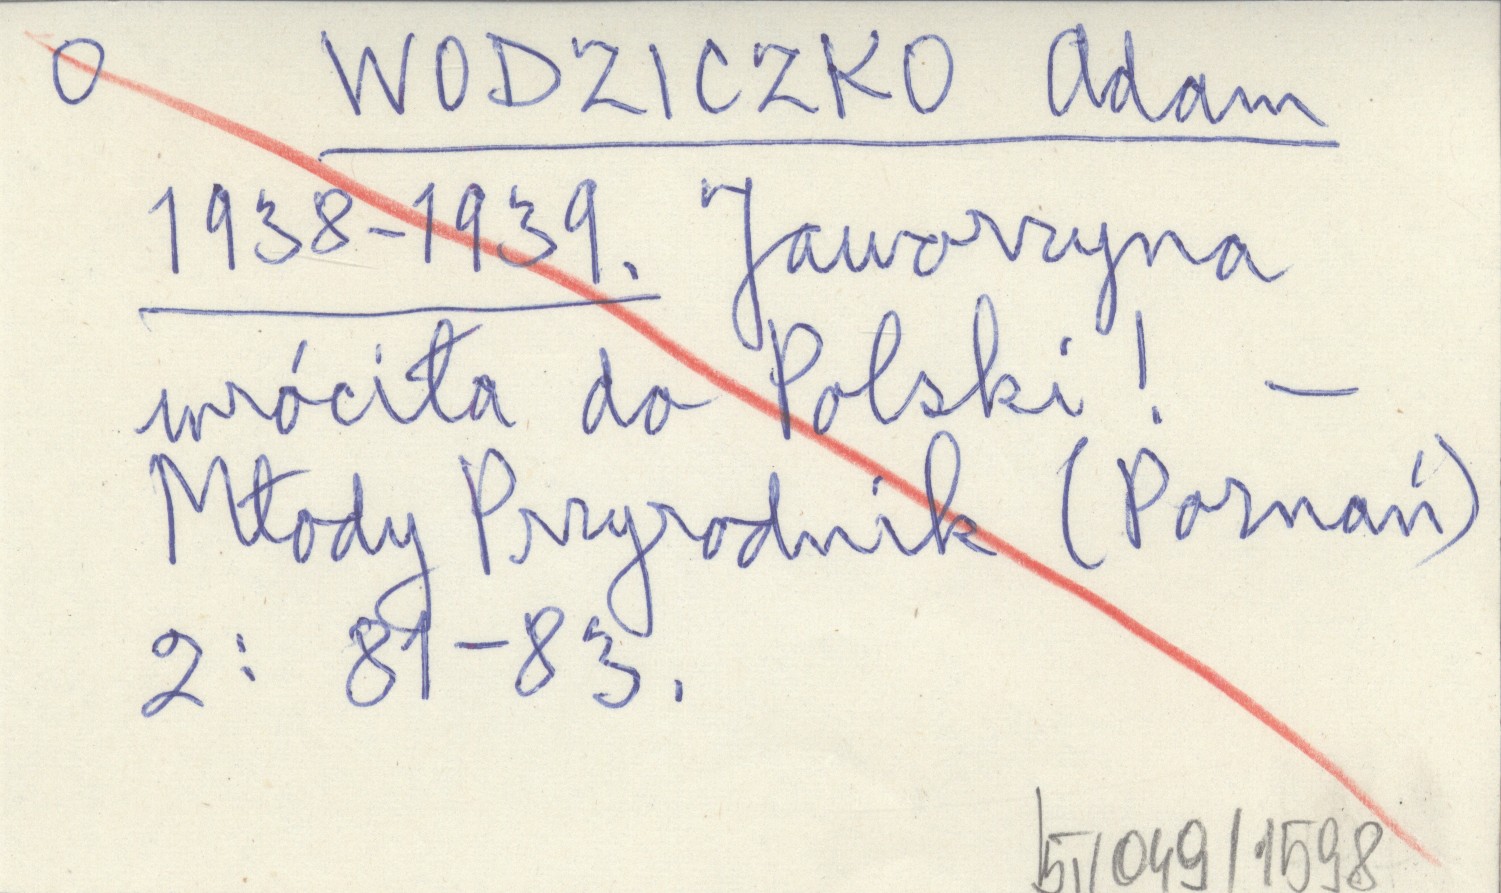 O WODZICZKO Adam
1938-1939. Jaworzyna
wróciła do Polski! —
Młody Przyrodnik (Poznań)
2: 81-83.
/049/1598